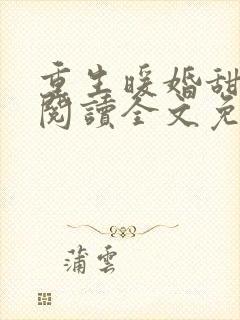 重生暖婚甜
閱讀全文免
蒲雲